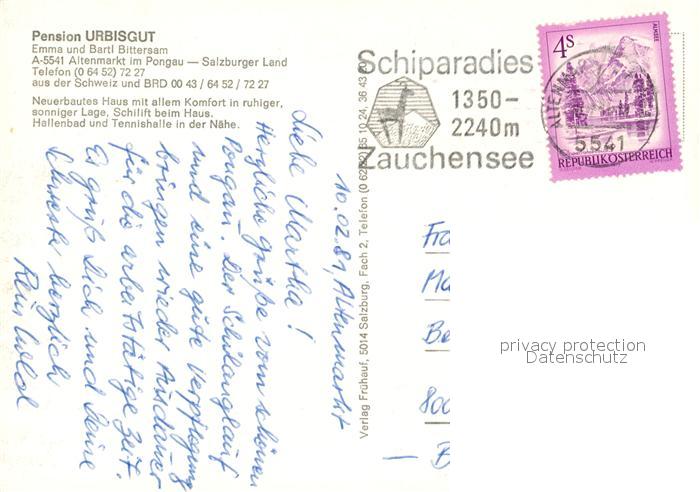 Pension URBISGUT
Emma und Bartl Bittersam
A-5541 Altenmarkt im Pongau — Salzburger Land
Telefon (0 64 52) 72 27
aus der Schweiz und BRD 00 43 / 64 52 / 72 27
Neuerbautes Haus mit allem Komfort in ruhiger,
sonniger Lage, Schilift beim Haus,
Hallenbad und Tennishalle in der Nähe.
Schiparadies
1350-
2240m
Zauchensee
4S
ALMSEE
REPUBLIK ÖSTERREICH
ALTENMA
5541
10.02.81, Altenmarkt
Liebe Martha!
Herzliche Grüße vom schönen
Pongau. Der Schilanglauf
und eine gute Verpflegung
bringen wieder Ausdauer
für die arbeitstätige Zeit.
Es grüßt Dich und Deine
herzlich
Verlag Frühauf, 5014 Salzburg, Fach 2, Telefon (0 62 22)
Fra
Ma
Be
800
B
privacy protection
Datenschutz